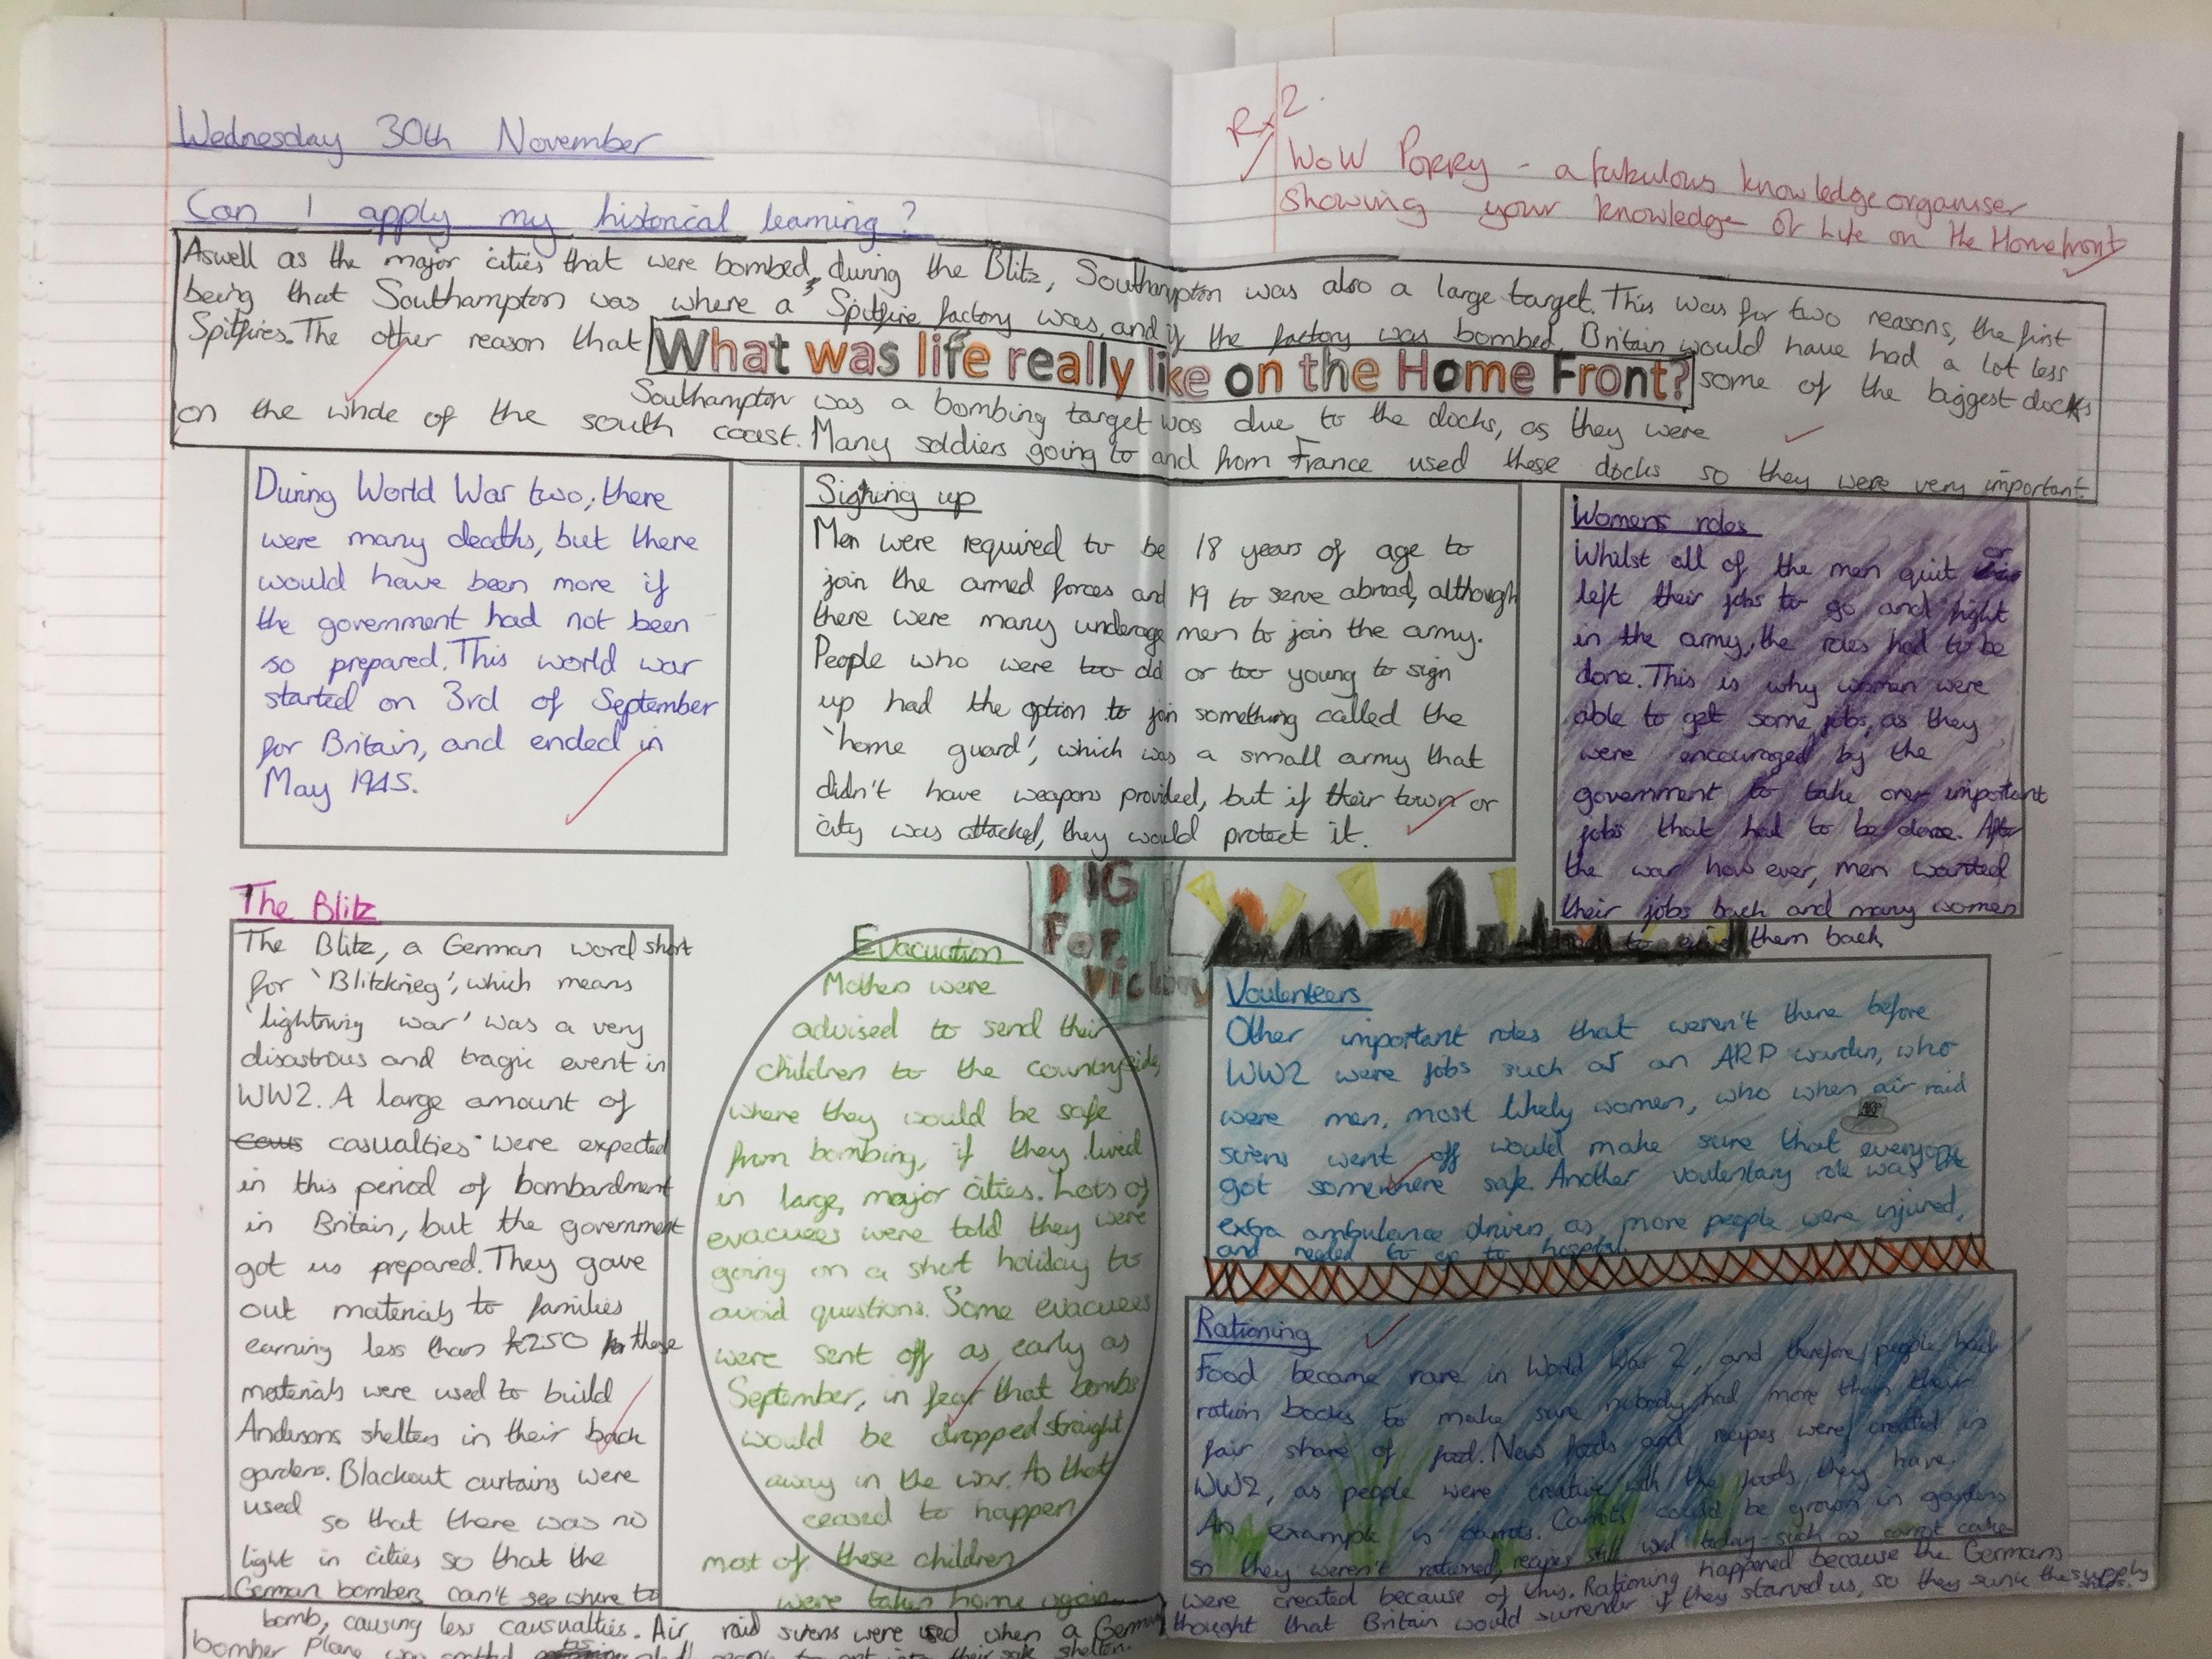 Wednesday 30th November
Can I apply my historical learning?
R 2.
WoW Poppy - a fabulous knowledge organiser
showing your knowledge of life on the Homefront
Aswell as the major cities that were bombed, during the Blitz, Southampton was also a large target. This was for two reasons, the first
being that Southampton was where a Spitfire factory was, and if the factory was bombed, Britain would have had a lot less
Spitfires. The other reason that
What was life really like on the Home Front?
Southampton was a bombing target was due to the docks, as they were
some of the biggest docks
on the whole of the south coast. Many soldiers going to and from France used these docks so they were very important.
During World War two, there
were many deaths, but there
would have been more if
the government had not been
so prepared. This world war
started on 3rd of September
for Britain, and ended in
May 1945.
Signing up
Men were required to be 18 years of age to
join the armed forces and 19 to serve abroad, although
there were many underage men to join the army.
People who were too old or too young to sign
up had the option to join something called the
'home guard', which was a small army that
didn't have weapons provided, but if their town or
city was attacked, they would protect it.
Womens roles
Whilst all of the men quit or
left their jobs to go and fight
in the army, the roles had to be
done. This is why women were
able to get some jobs, as they
were encouraged by the
government to take over important
jobs that had to be done. After
the war how ever, men wanted
their jobs back and many women
had to give them back.
The Blitz
The Blitz, a German word short
for 'Blitzkrieg', which means
'lightning war' was a very
disastrous and tragic event in
WW2. A large amount of
casualties were expected
in this period of bombardment
in Britain, but the government
got us prepared. They gave
out materials to families
earning less than £250 these
materials were used to build
Andersons shelters in their back
gardens. Blackout curtains were
used so that there was no
light in cities so that the
German bombers can't see where to
bomb, causing less causualties. Air raid sirens were used when a German
bomber plane was spotted people to get into their safe shelter.
DIG
For
Victory
Evacuation
Mothers were
advised to send their
children to the countryside,
where they would be safe
from bombing, if they lived
in large, major cities. Lots of
evacuees were told they were
going on a short holiday to
avoid questions. Some evacuees
were sent off as early as
September, in fear that bombs
would be dropped straight
away in the war. As that
ceased to happen
most of these children
were taken home again
Voulenteers
Other important roles that weren't there before
WW2 were jobs such as an ARP warden, who
were men, most likely women, who when air raid
sirens went off would make sure that everyone
got somewhere safe. Another voulentary role was the
extra ambulance drivers, as more people were injured,
and needed to go to hospital.
Rationing
Food became rare in World War 2, and therefore people had
ration books to make sure nobody had more than their
fair share of food. New foods and recipes were created in
WW2, as people were creative with the foods they have.
An example is carrots. Carrots could be grown in gardens
so they weren't rationed, recipes still used today such as carrot cake
were created because of this. Rationing happened because the Germans
thought that Britain would surrender if they starved us, so they sunk the supply
ships.